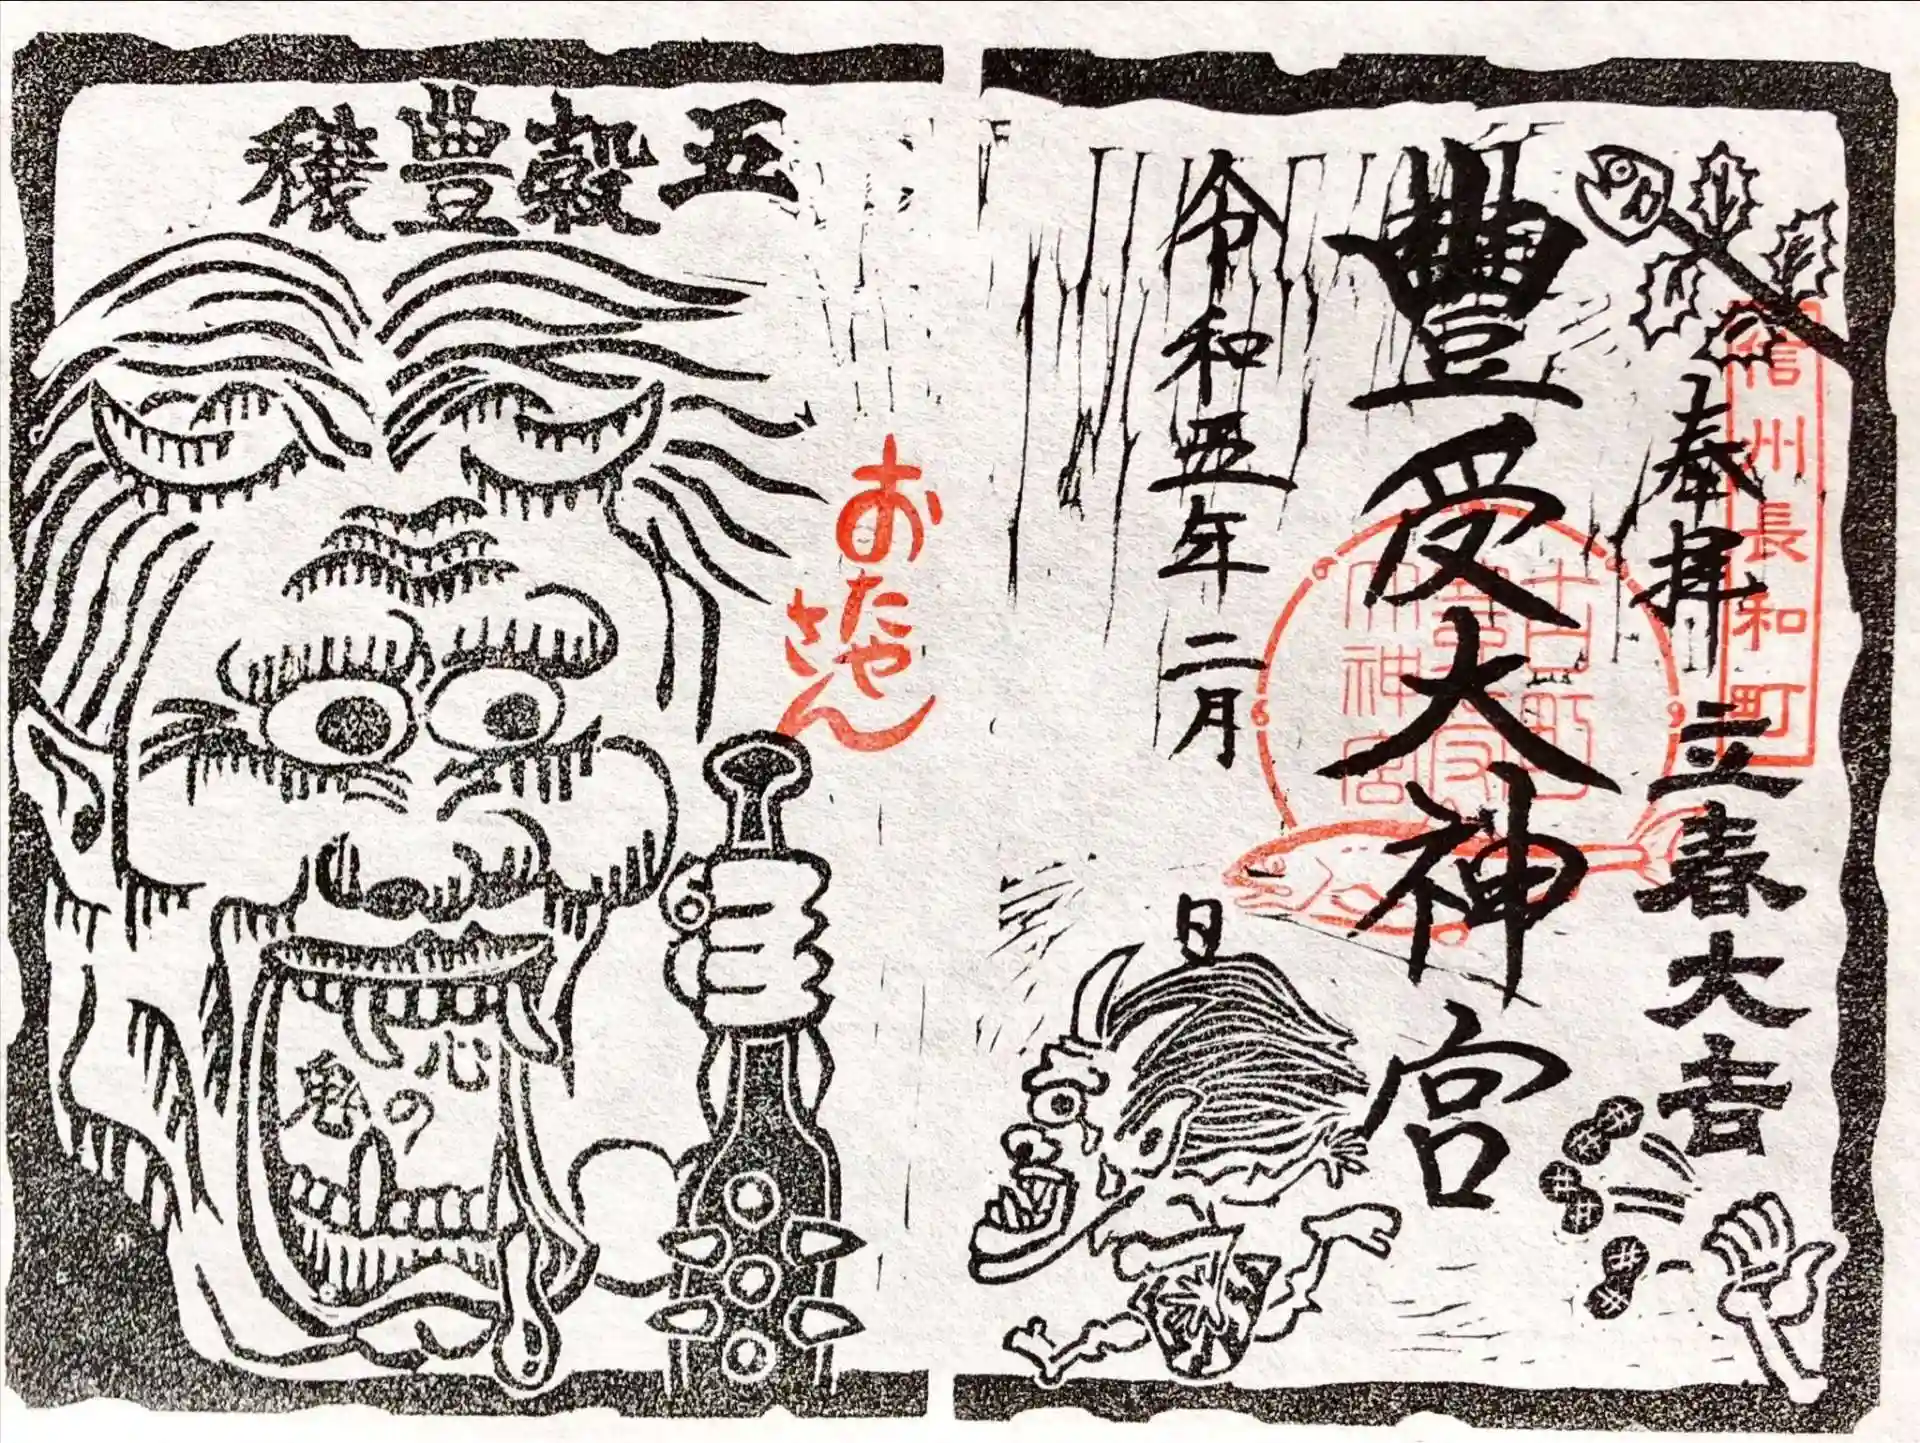 信州長和町
奉拝
立春大吉
豊受大神宮
令和五年二月
日
五穀豊穣
おたやさん
心の鬼